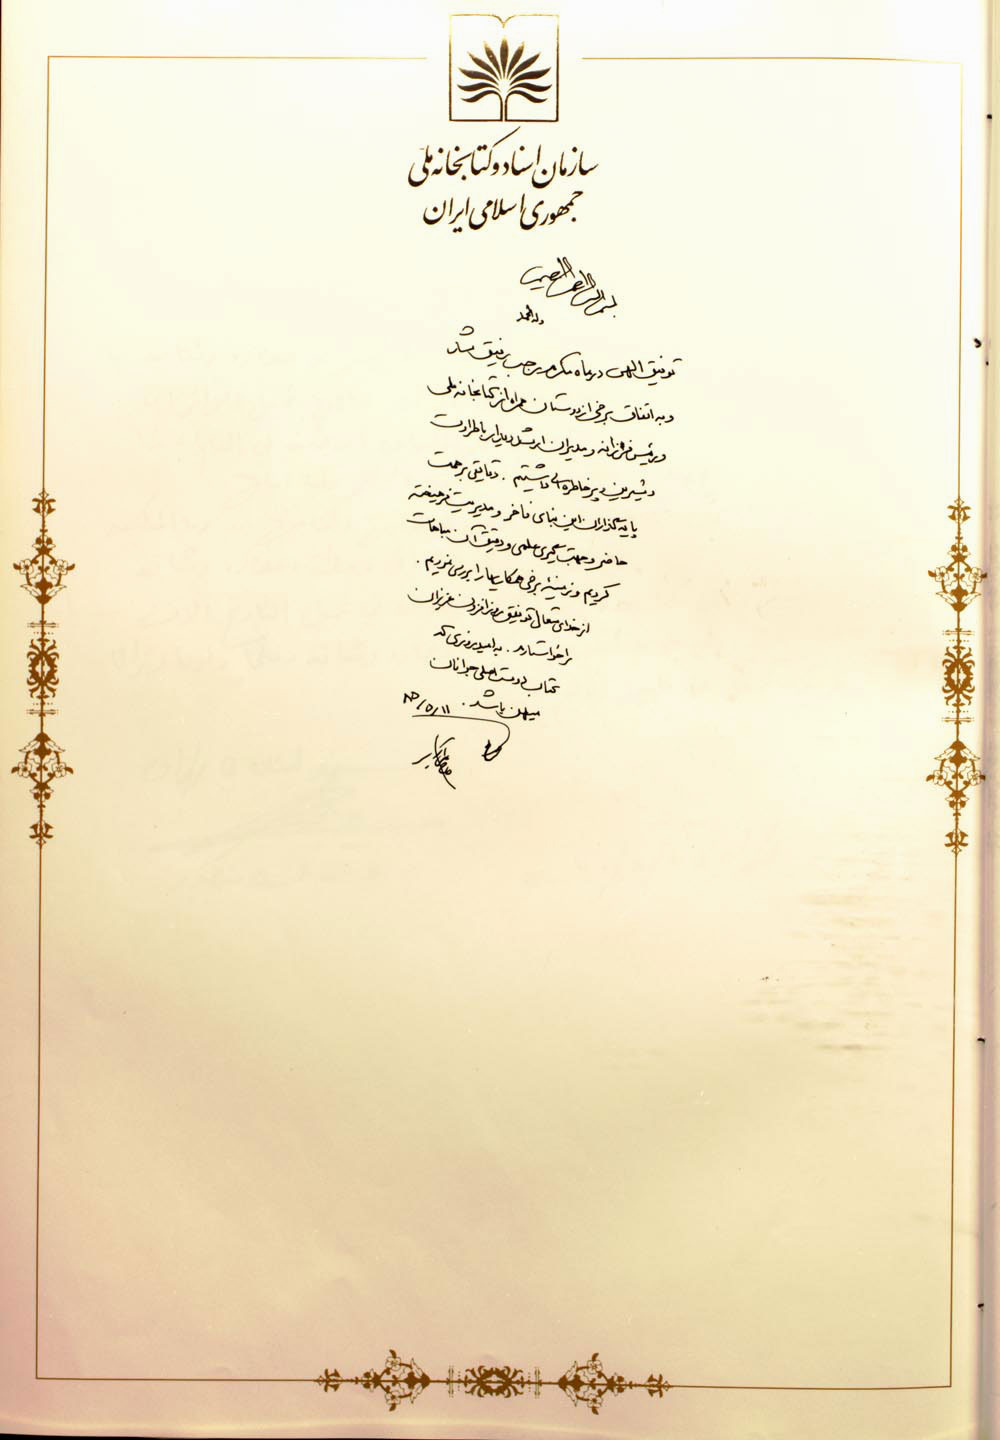 سازمان اسناد و کتابخانه ملی
جمهوری اسلامی ایران
بسم الله الرحمن الرحیم
وله الحمد
توفیق الهی در ماه مکرم رجب رفیق شد
و به اتفاق برخی از دوستان همراه از کتابخانه ملی
و رئیس فرزانه و مدیران ارشد دیدار با طراوت
و شیرین و پرخاطره ای داشتیم . دقایقی بر همت
پایه گذاران این بنای فاخر و مدیریت فرهیخته
حاضر و جهت گیری علمی و دقیق آن مباهات
کردیم و زمینه برخی همکاریها را بررسی نمودیم .
از خدای متعال توفیق روزافزون عزیزان
را خواستارم . به امید روزی که
کتاب دوست اصلی جوانان
میهن باشد . ۸۶/۵/۱۱